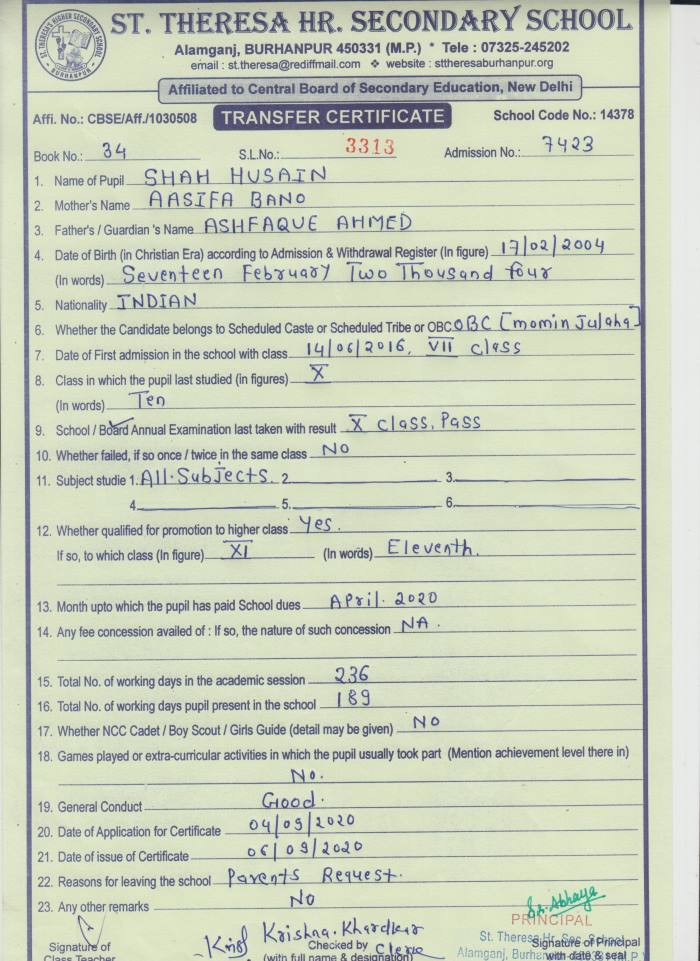 ST. THERESA HR. SECONDARY SCHOOL
Alamganj, BURHANPUR 450331 (M.P.) * Tele : 07325-245202
email : st.theresa@rediffmail.com ❖ website : sttheresaburhanpur.org
Affiliated to Central Board of Secondary Education, New Delhi
Affi. No.: CBSE/Aff./1030508 TRANSFER CERTIFICATE School Code No.: 14378
Book No.: 34 S.L.No.: 3313 Admission No.: 7423
1. Name of Pupil SHAH HUSAIN
2. Mother's Name AASIFA BANO
3. Father's / Guardian 's Name ASHFAQUE AHMED
4. Date of Birth (in Christian Era) according to Admission & Withdrawal Register (In figure) 17/02/2004
(In words) Seventeen February Two Thousand four
5. Nationality INDIAN
6. Whether the Candidate belongs to Scheduled Caste or Scheduled Tribe or OBC OBC [momin Julaha]
7. Date of First admission in the school with class 14/06/2016, VII class
8. Class in which the pupil last studied (in figures) X
(In words) Ten
9. School / Board Annual Examination last taken with result X class, Pass
10. Whether failed, if so once / twice in the same class NO
11. Subject studie 1. All.Subjects. 2. 3.
4. 5. 6.
12. Whether qualified for promotion to higher class Yes.
If so, to which class (In figure) XI (In words) Eleventh.
13. Month upto which the pupil has paid School dues April. 2020
14. Any fee concession availed of : If so, the nature of such concession NA.
15. Total No. of working days in the academic session 236
16. Total No. of working days pupil present in the school 189
17. Whether NCC Cadet / Boy Scout / Girls Guide (detail may be given) NO
18. Games played or extra-curricular activities in which the pupil usually took part (Mention achievement level there in)
No.
19. General Conduct Good.
20. Date of Application for Certificate 04/09/2020
21. Date of issue of Certificate 06/09/2020
22. Reasons for leaving the school Parents Request.
23. Any other remarks No
Sr. Abhaya
PRINCIPAL
Krishna. Khardkar
St. Theresa Hr. Sec. School
Signature of Checked by Clerk Signature of Principal
Class Teacher (with full name & designation) Alamganj, with date & seal